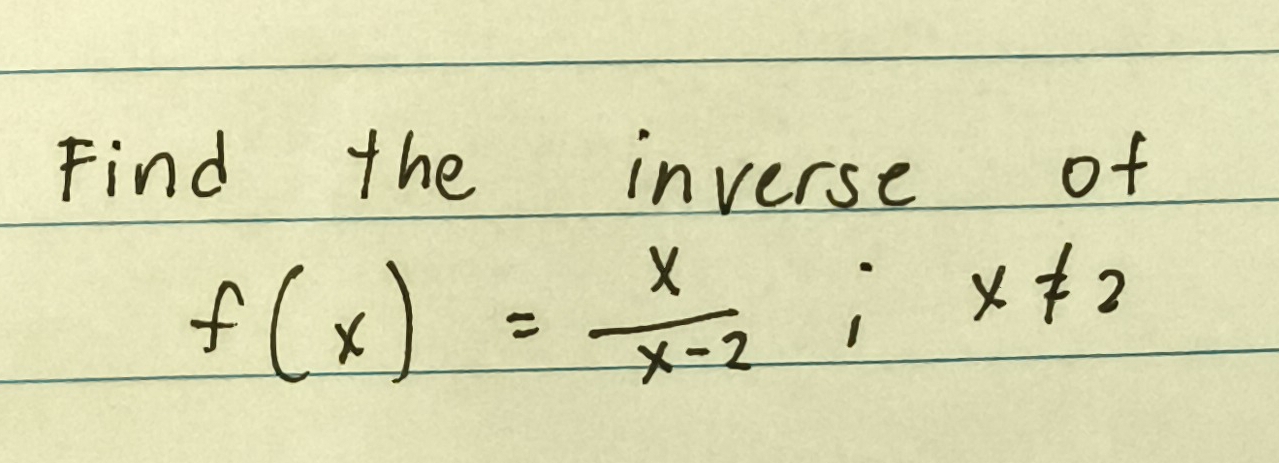 Find the inverse of
f(x) = x/(x-2) ; x ≠ 2